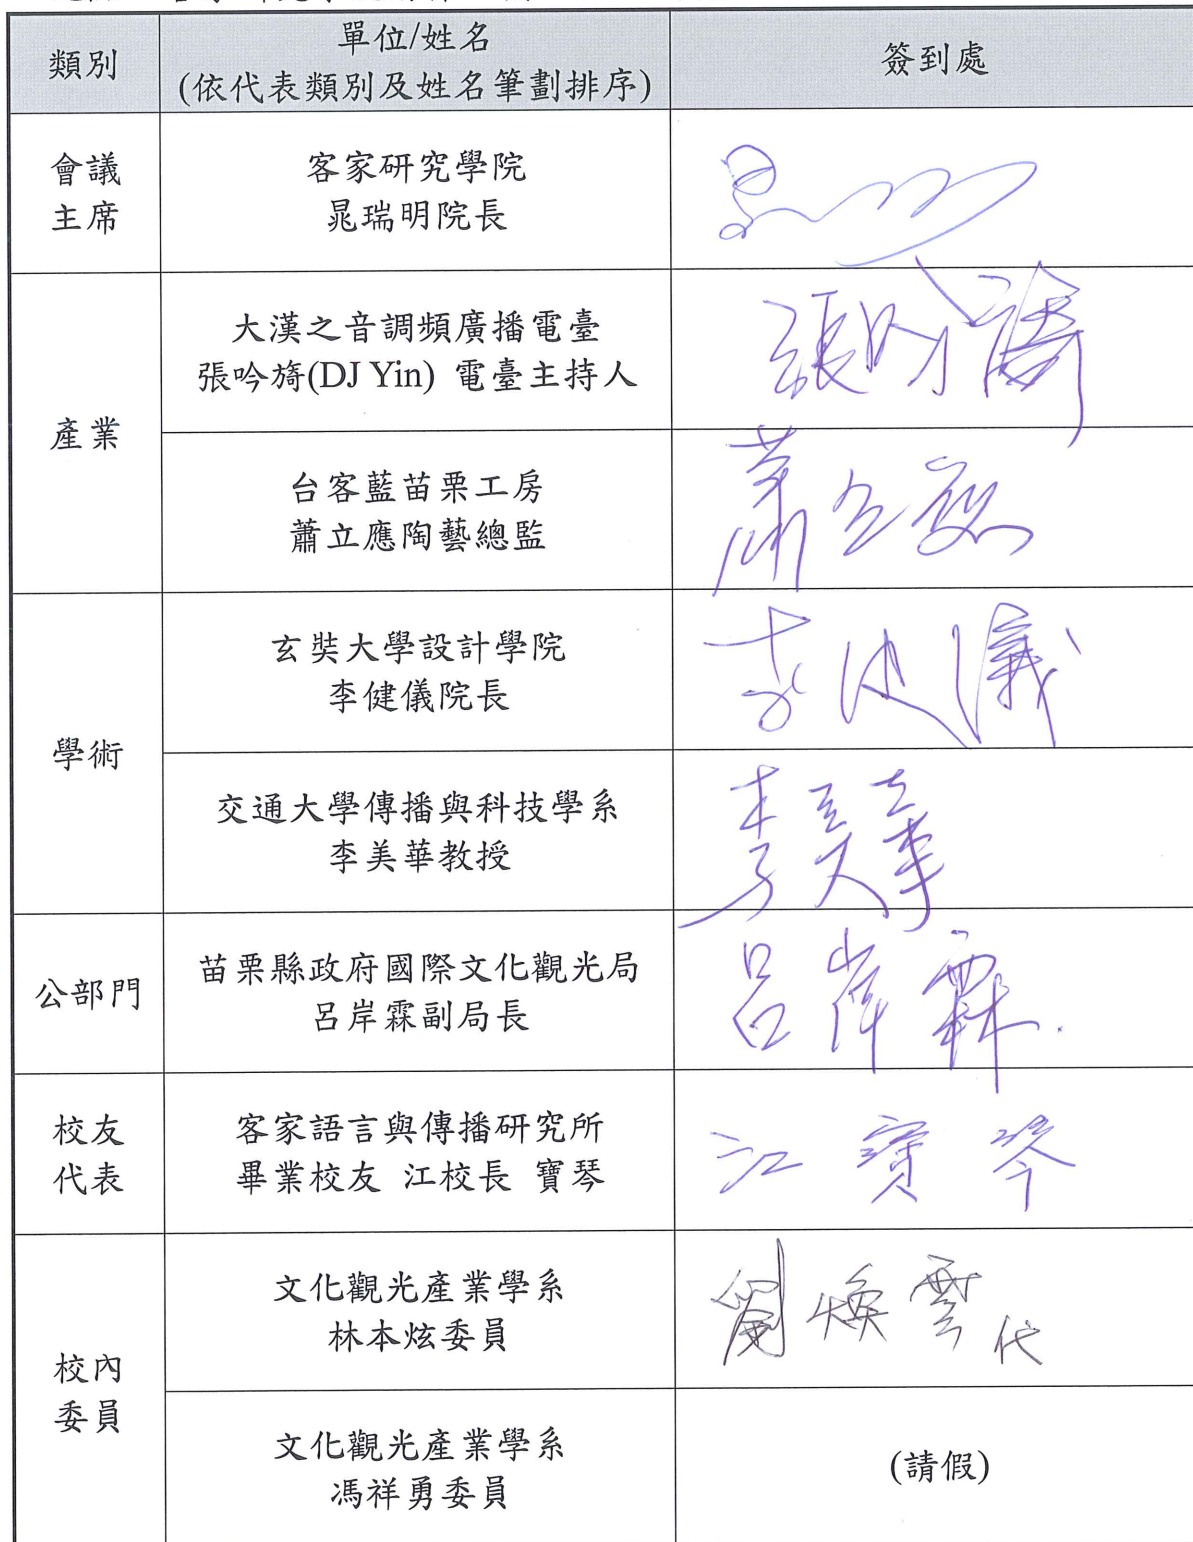 類別
單位/姓名
(依代表類別及姓名筆劃排序)
簽到處
會議
主席
客家研究學院
晁瑞明院長
產業
大漢之音調頻廣播電臺
張吟旖(DJ Yin) 電臺主持人
張吟旖
台客藍苗栗工房
蕭立應陶藝總監
蕭立應
學術
玄奘大學設計學院
李健儀院長
李健儀
交通大學傳播與科技學系
李美華教授
李美華
公部門
苗栗縣政府國際文化觀光局
呂岸霖副局長
呂岸霖
校友
代表
客家語言與傳播研究所
畢業校友 江校長 寶琴
江寶琴
校內
委員
文化觀光產業學系
林本炫委員
劉煥雲代
文化觀光產業學系
馮祥勇委員
(請假)